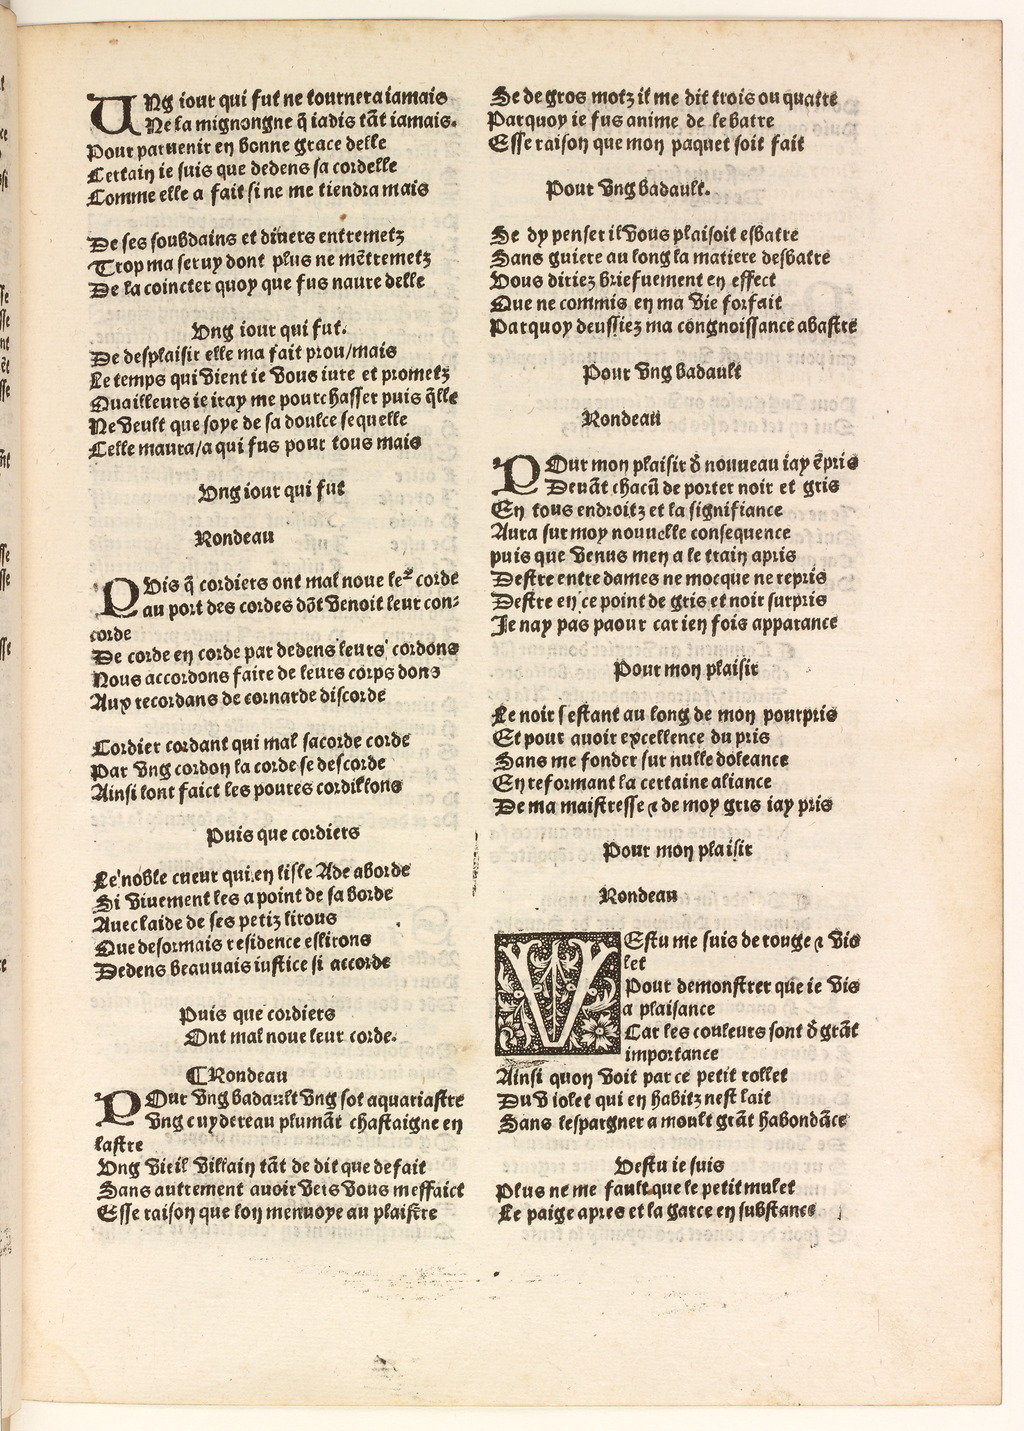 Ung iour qui fut ne tournera iamais
Ne la mignongne q̃ iadis tãt iamais.
Pour paruenir en bonne grace delle
Certain ie suis que dedens sa cordelle
Comme elle a fait si ne me tiendra mais
De ses soubdains et diuers entremetz
Trop ma seruy dont plus ne mẽtremetz
De la coincter quoy que fus naure delle
Ung iour qui fut.
De desplaisir elle ma fait prou/mais
Le temps qui vient ie vous iure et prometz
Quailleurs ie iray me pourchasser puis q̃lle
Ne veult que soye de sa doulce sequelle
Celle maura/a qui fus pour tous mais
Ung iour qui fut
Rondeau
PVis q̃ cordiers ont mal noue leᷣ corde
au port des cordes dõt venoit leur con-
corde
De corde en corde par dedens leurs cordons
Nous accordons faire de leurs corps dons
Aux recordans de cornarde discorde
Cordier cordant qui mal sacorde corde
Par vng cordon la corde se descorde
Ainsi lont faict les poures cordillons
Puis que cordiers
Le noble cueur qui en lisle Ade aborde
Si viuement les a point de sa borde
Auec laide de ses petiz lirons
Que desormais residence eslirons
Dedens beauuais iustice si accorde
Puis que cordiers
Ont mal noue leur corde.
¶Rondeau
POur vng badault vng sot aquariastre
Vng cuydereau plumãt chastaigne en
lastre
Vng vieil villain tãt de dit que de fait
Sans autrement auoir vers vous meffaict
Esse raison que lon menuoye au plaistre
Se de gros motz il me dit trois ou quatre
Parquoy ie fus anime de le batre
Esse raison que mon paquet soit fait
Pour vng badault.
Se dy penser il vous plaisoit esbatre
Sans guiere au long la matiere desbatre
Vous diriez briefuement en effect
Que ne commis en ma vie forfait
Parquoy deussiez ma congnoissance abastre
Pour vng badault
Rondeau
POur mon plaisir d̃ nouueau iay ẽpris
Deuãt chacũ de porter noir et gris
En tous endroitz et la signifiance
Aura sur moy nouuelle consequence
puis que Venus men a le train apris
Destre entre dames ne mocque ne repris
Destre en ce point de gris et noir surpris
Je nay pas paour car ien fois apparance
Pour mon plaisir
Le noir sestant au long de mon pourpris
Et pour auoir excellence du pris
Sans me fonder sur nulle doleance
En reformant la certaine aliance
De ma maistresse ⁊ de moy gris iay pris
Pour mon plaisir
Rondeau
VEstu me suis de rouge ⁊ vio
let
Pour demonstrer que ie vis
a plaisance
Car les couleurs sont d̃ grãt
importance
Ainsi quon voit par ce petit rollet
Du violet qui en habitz nest lait
Sans lespargner a moult grãt habondãce
Vestu ie suis
Plus ne me fault que le petit mulet
Le paige apres et la garce en substance